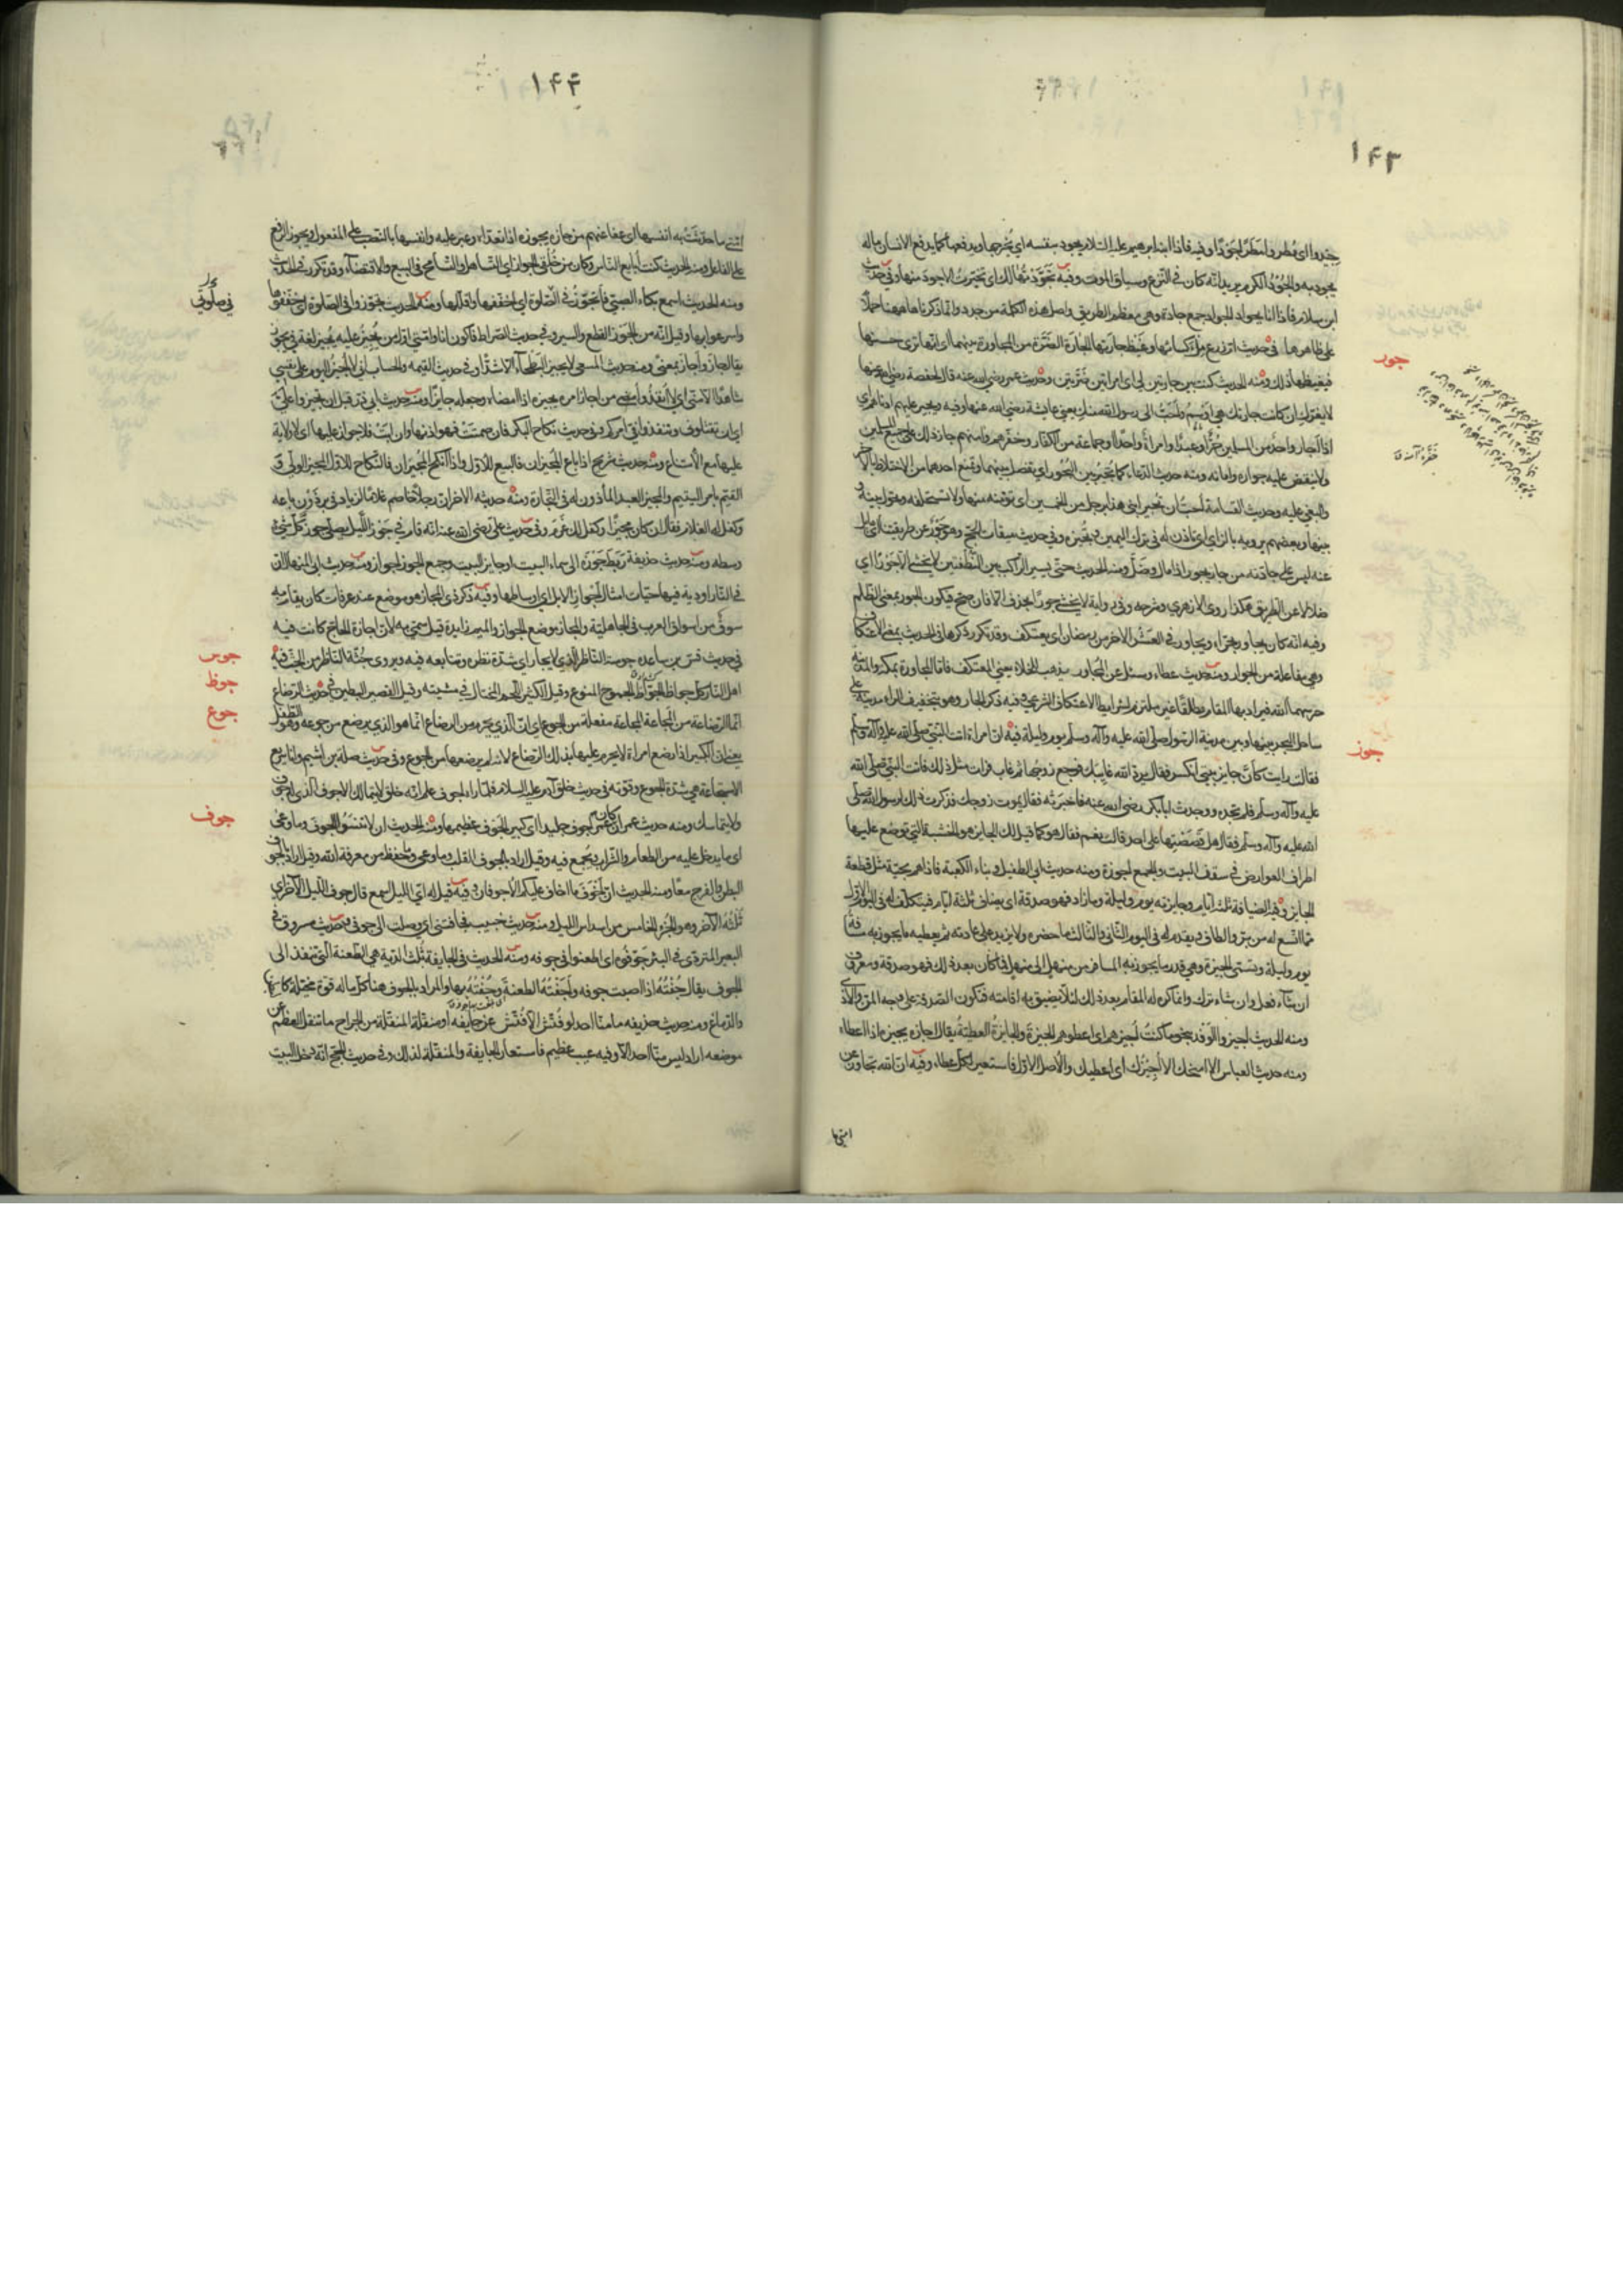 ١٤٣
جيدوا اى مُطِروا مطرًا جَودًا وفيه فاذا ابنه ابرهيم عليه السلام يجود بنفسه اى يُخرجها ويدفعها كما يدفع الانسان ماله
يجود به والجُوُد الكرم يريد انه كان فى النزع وسياق الموت وفيه تجوّدتها لك اى تخيرتُ الاجود منها وفى حديث
ابن سلام فاذا انا بجوادّ الجوادّ جمع جادة وهى معظم الطريق واصل هذه الكلمة من جدد وانما ذكرناها ههنا حملاً
جور
على ظاهرها فى حديث ام زرع مِلْءُ كسائها وغيظ جارتها الجارة الضَرّة من المجاورة بينهما اى انها ترى حسنها
فيغيظها ذلك ومنه الحديث كنت بين جارتين لى اى امراتين ضَرَّتين وحديث عمر رضى الله عنه قال لحفصة رضى الله عنها
لا يغرّك ان كانت جارتك هى اوسَم واحَبّ الى رسول الله منك يعنى عايشة رضى الله عنها وفيه ويجير عليهم ادناهم اى
اذا اجار واحد من المسلمين حُرٌّ او عبدٌ او امراةٌ واحدًا او جماعة من الكفار وخفرهم وامنهم جاز ذلك على جميع المسلمين
ولا ينقض عليه جواره وامانه ومنه حديث الدعاء كما تُجير بين البُحُور اى تفصل بينها وتمنع احدها من الاختلاط بالآخر
والبغى عليه وحديث القسامة أحبّ ان تجير ابنى هذا برجل من الخمسين اى تؤمنه منها ولا تستحلفه وتحول بينه و
بينها وبعضهم يرويه بالزاى اى تاذن له فى ترك اليمين وتجيزه وفى حديث ميقات الحج وهو جَورٌ عن طريقنا اى مايل
عنه ليس على جادّته من جار يجور اذا مال وضلّ ومنه الحديث حتى يسير الراكب بين النطفتين لا يخشى الا جَورًا اى
ضلالا عن الطريق هكذا روى الازهرى وشرحه وفى رواية لا يخشى جورًا بحذف الا فان صح فيكون الجور بمعنى الظلم
وفيه انه كان يجاور بحراء ويجاور فى العشر الاواخر من رمضان اى يعتكف وقد تكرر ذكرها فى الحديث بمعنى الاعتكاف
وهى مفاعلة من الجوار ومنه حديث عطاء وسئل عن المجاور يذهب للخلاء يعنى المعتكف فاما المجاورة بمكة والمدينة
حرسهما الله فيراد بها المقام مطلقًا غير ملتزم بشرايط الاعتكاف الشرعى وفيه ذكر الجار وهو بتخفيف الراء مدينة على
جوز
ساحل البحر بينها وبين مدينة الرسول صلى الله عليه وآله وسلم يوم وليلة فيه ان امراة اتت النبى صلى الله عليه وآله وسلم
فقالت رايت كأنّ جايز بيتى انكسر فقال يردّ الله غايبك فرجع زوجها ثم غاب فرات مثل ذلك فاتت النبى صلى الله
عليه وآله وسلم فلم تجده ووجدت ابا بكر رضى الله عنه فاخبرته فقال يموت زوجك فذكرت ذلك لرسول الله صلى
الله عليه وآله وسلم فقال هل قصصتِها على احد قالت نعم فقال هو كما قيل لك الجايز هو الخشبة التى توضع عليها
اطراف العوارض فى سقف البيت والجمع اجوزة ومنه حديث ابى الطفيل وبناء الكعبة فاذا هم بحيّة مثل قطعة
الجايز وفيه الضيافة ثلثة ايام وجايزته يوم وليلة وما زاد فهو صدقة اى يضاف ثلثة ايام فيتكلف له فى اليوم الاول
مما اتسع له من برّ والطاف ويقدم له فى اليوم الثانى والثالث ما حضره ولا يزيد على عادته ثم يعطيه ما يجوز به مسافة
يوم وليلة وتسمى الجيزة وهى قدر ما يجوز به المسافر من منهل الى منهل فما كان بعد ذلك فهو صدقة ومعروف
ان شاء فعل وان شاء ترك وانما كره له المقام بعد ذلك لئلا يضيق به اقامته فتكون الصدقة على وجه المنّ والاذى
ومنه الحديث اجيزوا الوَفد بنحو ما كنتُ اُجيزهم اى اعطوهم الجيزة والجايزة العطيّة يقال اجازه يجيزه اذا اعطاه
ومنه حديث العباس الا امنحك الا اُجيزك اى اعطيك والاصل الاول فاستعير لكل عطاء وفيه ان الله تجاوز عن
امتى ما
١٤٤
امتى ما حدّثت به انفسها اى عفا عنهم من جازه يجوزه اذا تعدّاه وعبر عليه وانفسها بالنصب على المفعول ويجوز الرفع
على الفاعل ومنه الحديث كنت أبايع الناس وكان من خُلُقى الجواز اى التساهل والتسامح فى البيع والاقتضاء وقد تكرر فى الحديث
ومنه الحديث اسمع بكاء الصبى فأتجوّز فى الصلوة اى اخففها واقللها ومنه الحديث تجوّزوا فى الصلوة اى خففوها
واسرعوا بها وقيل انه من الجَوز القطع والسير وفى حديث الصراط فاكون انا وامتى اول من يُجيز عليه يُجيز لغة فى يجوز
يقال جاز واجاز بمعنىً ومنه حديث المسعى لا يجيز البطحآء الا شدًّا وفى حديث القيمه والحساب انى لا اُجيز اليوم على نفسى
شاهدًا الا منى اى لا اُنفِذُ ولا اُمضى من اجاز امره يجيزه اذا امضاه وجعله جايزًا ومنه حديث ابى ذر قبل ان تجيزوا علىّ
اى ان تقتلونى وتنفذوا فىّ امركم وفى حديث نكاح البكر فان صمتت فهو اذنها وان ابَت فلا جواز عليها اى لا ولاية
عليها مع الامتناع ومنه حديث شريح اذا باع المجيزان فالبيع للاول واذا انكح المُجيزان فالنكاح للاول المجيز الولى و
القيم بامر اليتيم والمجيز العبد المأذون له فى التجارة ومنه حديثه الاخر ان رجلاً خاصم غلامًا لزياد فى برذون باعه
وكفل له الغلام فقال ان كان مجيزًا وكفل لك غَرِم وفى حديث على رضى الله عنه انه قام فى جَوز الليل يصلى جوز كل شئ
وسطه ومنه حديث حذيفة رَبَط جَوزه الى سماء البيت او جايز البيت وجمع الجوز اجواز ومنه حديث ابى المنهال ان
فى النار اودية فيها حيّات امثال اجواز الابل اى اوساطها وفيه ذكر ذى المجاز هو موضع عند عرفات كان يقام به
سوق من اسواق العرب فى الجاهلية والمجاز موضع الجواز والميم زايدة قيل سمّى به لان اجازة الحاج كانت فيه
جوس
فى حديث قسّ بن ساعده جوسة الناظر الذى لا يحار اى شدة نظره وتتابعه فيه ويروى حثّة الناظر من الحثّ فيه
جوظ
اهل النار كل جوّاظ الجوّاظ الجموع المنوع وقيل الكثير اللحم المختال فى مشيته وقيل القصير البطين فى حديث الرضاع
جوع
انما الرضاعة من المجاعة المجاعة مفعلة من الجوع اى انّ الذى يحرم من الرضاع انما هو الذى يرضع من جوعه وهو الطفل
يعنى ان الكبير اذا رضع امراة لا يحرم عليها بذلك الرضاع لانه لم يرضعها من الجوع وفى حديث صلة بن اشيم وانا سريع
الاستجاعة هى شدّة الجوع وقوّته فى حديث خلق آدم عليه السلام فلما رآه اجوف علم انه خلق لا يتمالك الاجوف الذى له جوف
جوف
ولا يتماسك ومنه حديث عمران كان عمر اجوف جليدا اى كبير الجوف عظيمها ومنه الحديث ان لا تنسوا الجوف وما وعى
اى ما يدخل عليه من الطعام والشراب ويجمع فيه وقيل اراد بالجوف القلب وما وعى وحفظ من معرفة الله وقيل اراد بالجوف
البطن والفرج معًا ومنه الحديث ان اخوف ما اخاف عليكم الاجوفان وفيه قيل له اىّ الليل اسمع قال جوف الليل الآخر اى
ثلثه الآخر وهو الجزء الخامس من اسداس الليل ومنه حديث خبيب فجافتنى اى وصلت الى جوفى وحديث مسروق فى
البعير المتردّى فى البئر جوفوه اى اطعنوا فى جوفه ومنه الحديث فى الجايفة ثلث الدية هى الطعنة التى تنفذ الى
الجوف يقال جُفتُه اذا اصبت جوفه واَجَفتُه الطعنة وجُفتُه بها والمراد بالجوف هنا كل ما له قوة محيلة كالبطن
والدماغ ومنه حديث حذيفه ما منّا احد لو فُتّش الا فُتّش عن جايفه او منقلة المنقلة من الجراح ما تنقل العظم عن
موضعه اراد ليس منّا احد الا وفيه عيب عظيم فاستعار الجايفة والمنقلة لذلك وفى حديث الحج انه دخل البيت